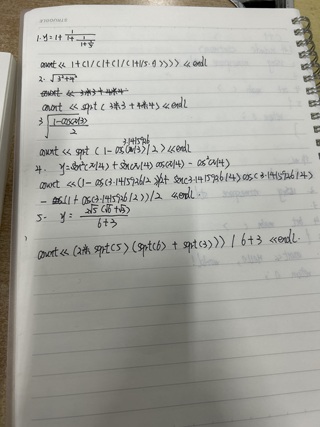 1. y = 1 + 1/(1 + 1/(1 + 1/5))
cout << 1+(1/(1+(1/(1+(1/5.1))))) << endl
2. √(3²+4²)
cout << 3*3 + 4*4
cout << sqrt (3*3 + 4*4) << endl
3. √((1-cos(π/3))/2)
3.1415926
cout << sqrt (1-cos(π/3)/2) << endl
4. y = sin²(π/4) + sin(π/4) cos(π/4) - cos²(π/4)
cout << (1-cos(3.1415926/2))/2 + sin(3.1415926/4) cos(3.1415926/4)
- (1+cos(3.1415926/2))/2 << endl
5. y = 2√5(√6+√3) / 6+3
cout << (2* sqrt(5) (sqrt(6) + sqrt(3))) / 6+3 << endl.